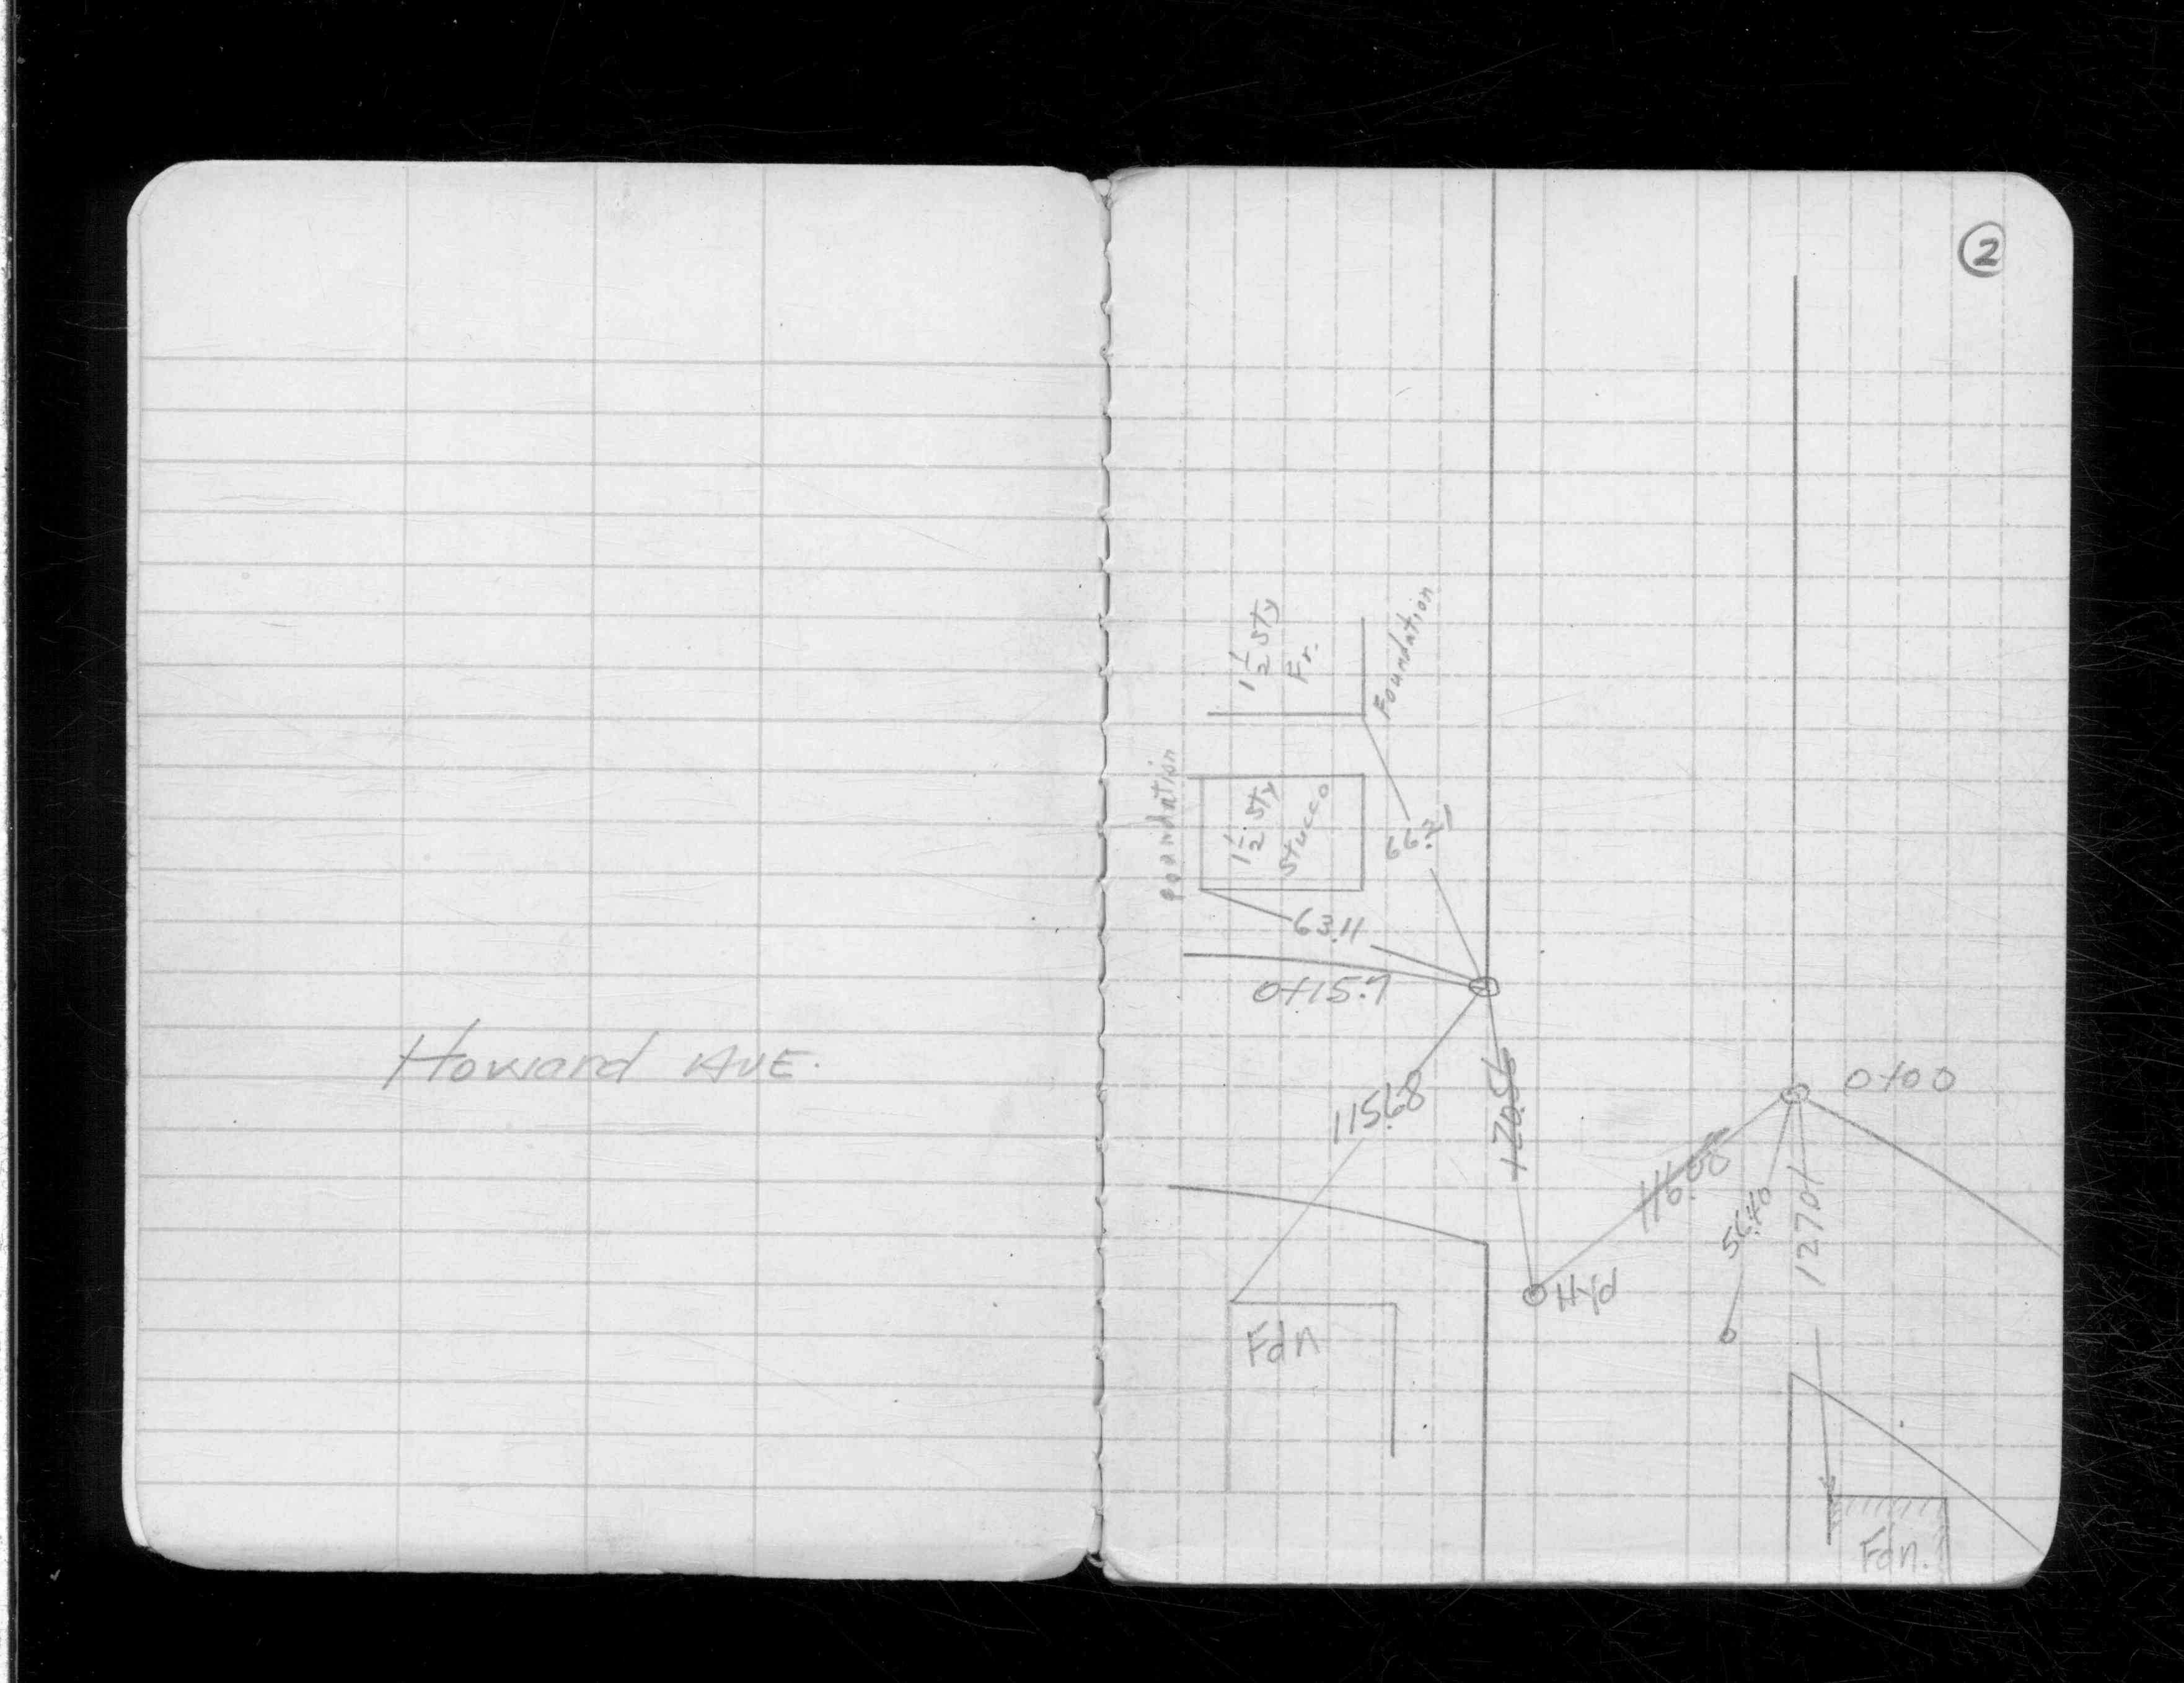 Howard AVE.
2
1 1/2 Sty
Fr.
Foundation
Foundation
1 1/2 Sty
Stucco
66.21
63.11
0+15.7
115.68
120.56
0+00
116.08
56.40
127.01
Hyd
Fdn
Fdn.